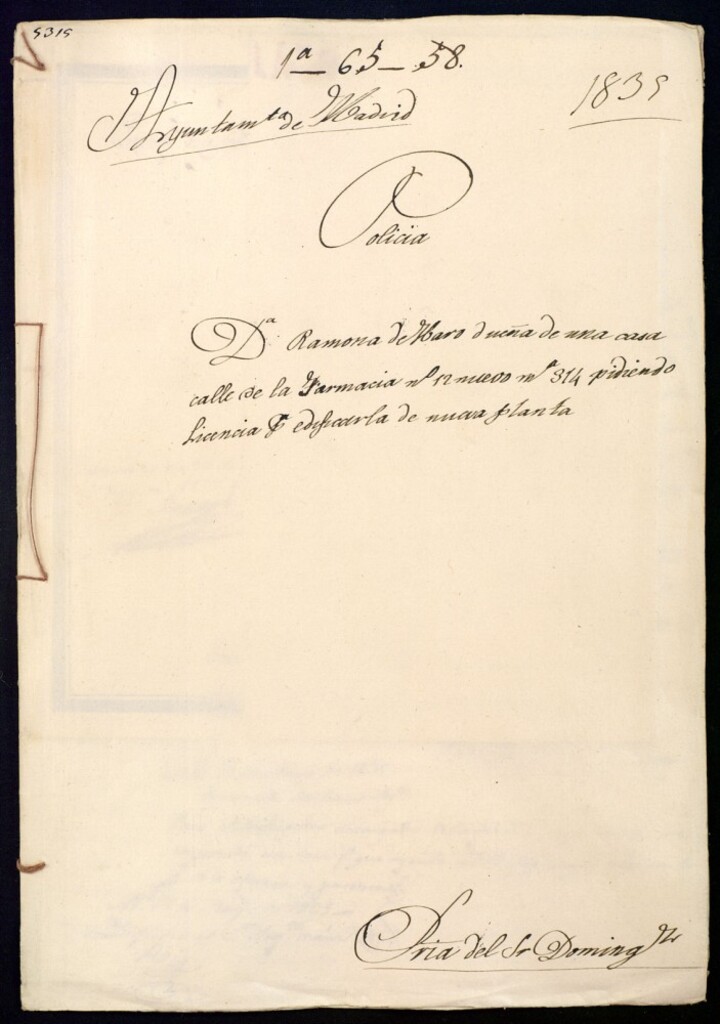 5315
1ª — 65 — 58.
1835
Ayuntamtº de Madrid
Policia
Dª Ramona de Haro dueña de una casa
calle de la Farmacia nº 12 nuevo mª 314 pidiendo
licencia pª edificarla de nueva planta
Sria del Sr Domingz